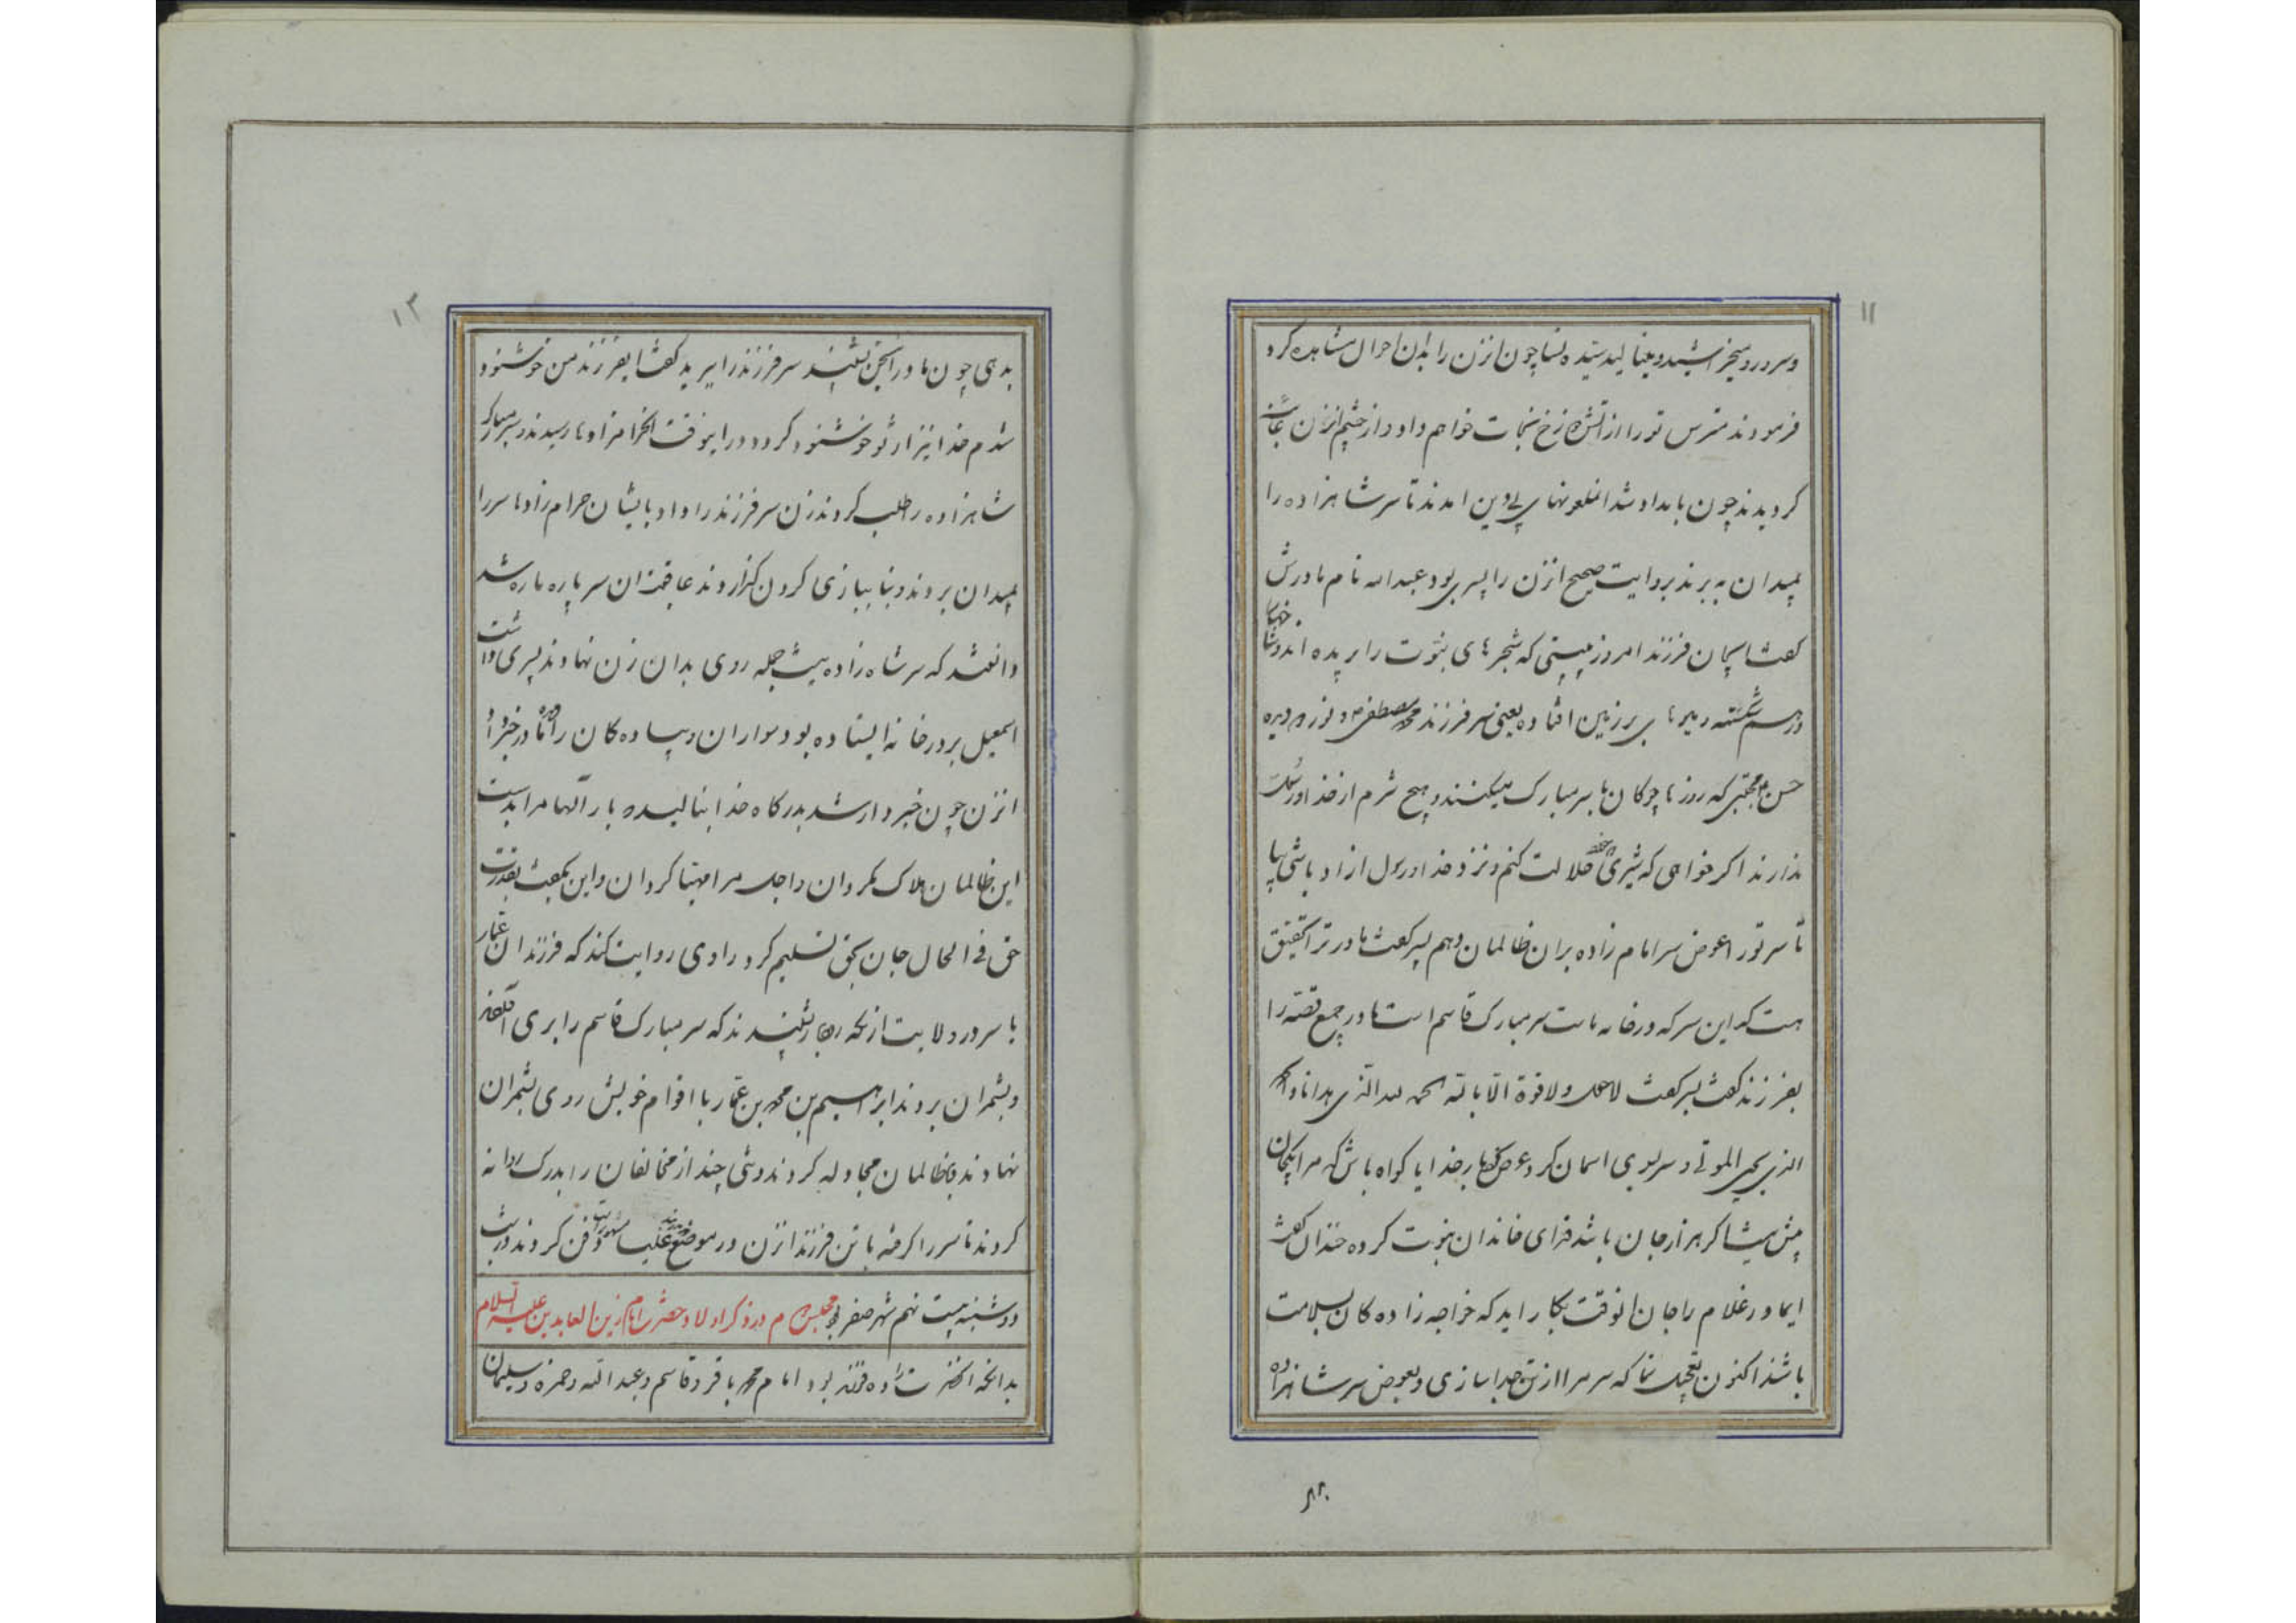 ۱۱
وسر ورو میخراشید و مینالید سیده نسا چون انزن را بدان احوال مشاهده کرد
فرمودند مترس تو را از اتش دوزخ نجات خواهم داد و از چشم انزن غائب
کردیدند چون بامداد شد انملعونهای بی دین امدند تا سر شاهزاده را
بمیدان به برند بروایت صحیح انزن را پسری بود عبدالله نام مادرش
کفت ایجان فرزند امروز میبینی که شجرهای نبوت را بریده اند و
درهم شکسته بر زمین افتاده یعنی سر فرزند محمد مصطفی و نور دیده
حسن مجتبی که روزها چوکان با سر مبارک میکنند و هیچ شرم از خدا و رسول
ندارند اکر خواهی که شیری حلالت کنم و نزد خدا و رسول ازاد باشی بیا
تا سر تو را عوض سر امام زاده بران ظالمان دهم پسر کفت مادر ترا تحقیق
هست که این سر که در خانه ماست سر مبارک قاسم است مادر جمیع قصه را
بفرزند کفت پسر کفت لاحول ولا قوة الا بالله الحمد لله الذی هدانا و
الذی یحیی الموتی و سر بسوی اسمان کرد عرض کرد بار خدایا کواه باش که مرا یکجان
بیش نیست اکر هزار جان باشد فدای خاندان نبوت کرده خندان کفت
ایمادر غلام را جان انوقت بکار اید که خواجه زاده کان بسلامت
باشند اکنون تعجیل نما که سر مرا از تن جدا سازی و بعوض سر شاهزاده
۱۲
بدهی چون مادر این سخن بشنید سر فرزند را برید کفت ایفرزند من خوشنود
شدم خدا نیز از تو خوشنود کردد در اینوقت انحرامزادها رسیدند سر مبارک
شاهزاده را طلب کردند زن سر فرزند را داد بایشان حرام زادها سر را
بمیدان بردند و بنا ببازی کردن کذاردند عاقبت ان سر پاره پاره شد
دانستند که سر شاه زاده نیست جمله روی بدان زن نهادند پسری داشت
اسمعیل بر در خانه ایستاده بود سواران و پیاده کان را مادر خبر داد
انزن چون خبردار شد بدرکاه خدا بنالید بار الها مرا بدست
این ظالمان هلاک مکردان و اجل مرا مهیا کردان و این بکفت بقدرت
حق فی الحال جان بحق تسلیم کرد راوی روایت کند که فرزندان عمار
با سرور ولایت ازنکه شنیدند که سر مبارک قاسم را بری
و بشمران بردند ابراهیم بن محمد بن عمار با اقوام خویش روی بشمران
نهادند با ظالمان مجادله کردند و تنی چند از مخالفان را بدرک روانه
کردند تا سر را کرفته با تن فرزند انزن در موضع علیا دفن کردند در شب
دوشنبه بیست نهم شهر صفر بود مجلس دوم در ذکر اولاد حضرت امام زین العابدین علیه السلام
بدانکه انحضرت را ده فرزند بود امام محمد باقر و قاسم و عبدالله و حمزه و سلیمان